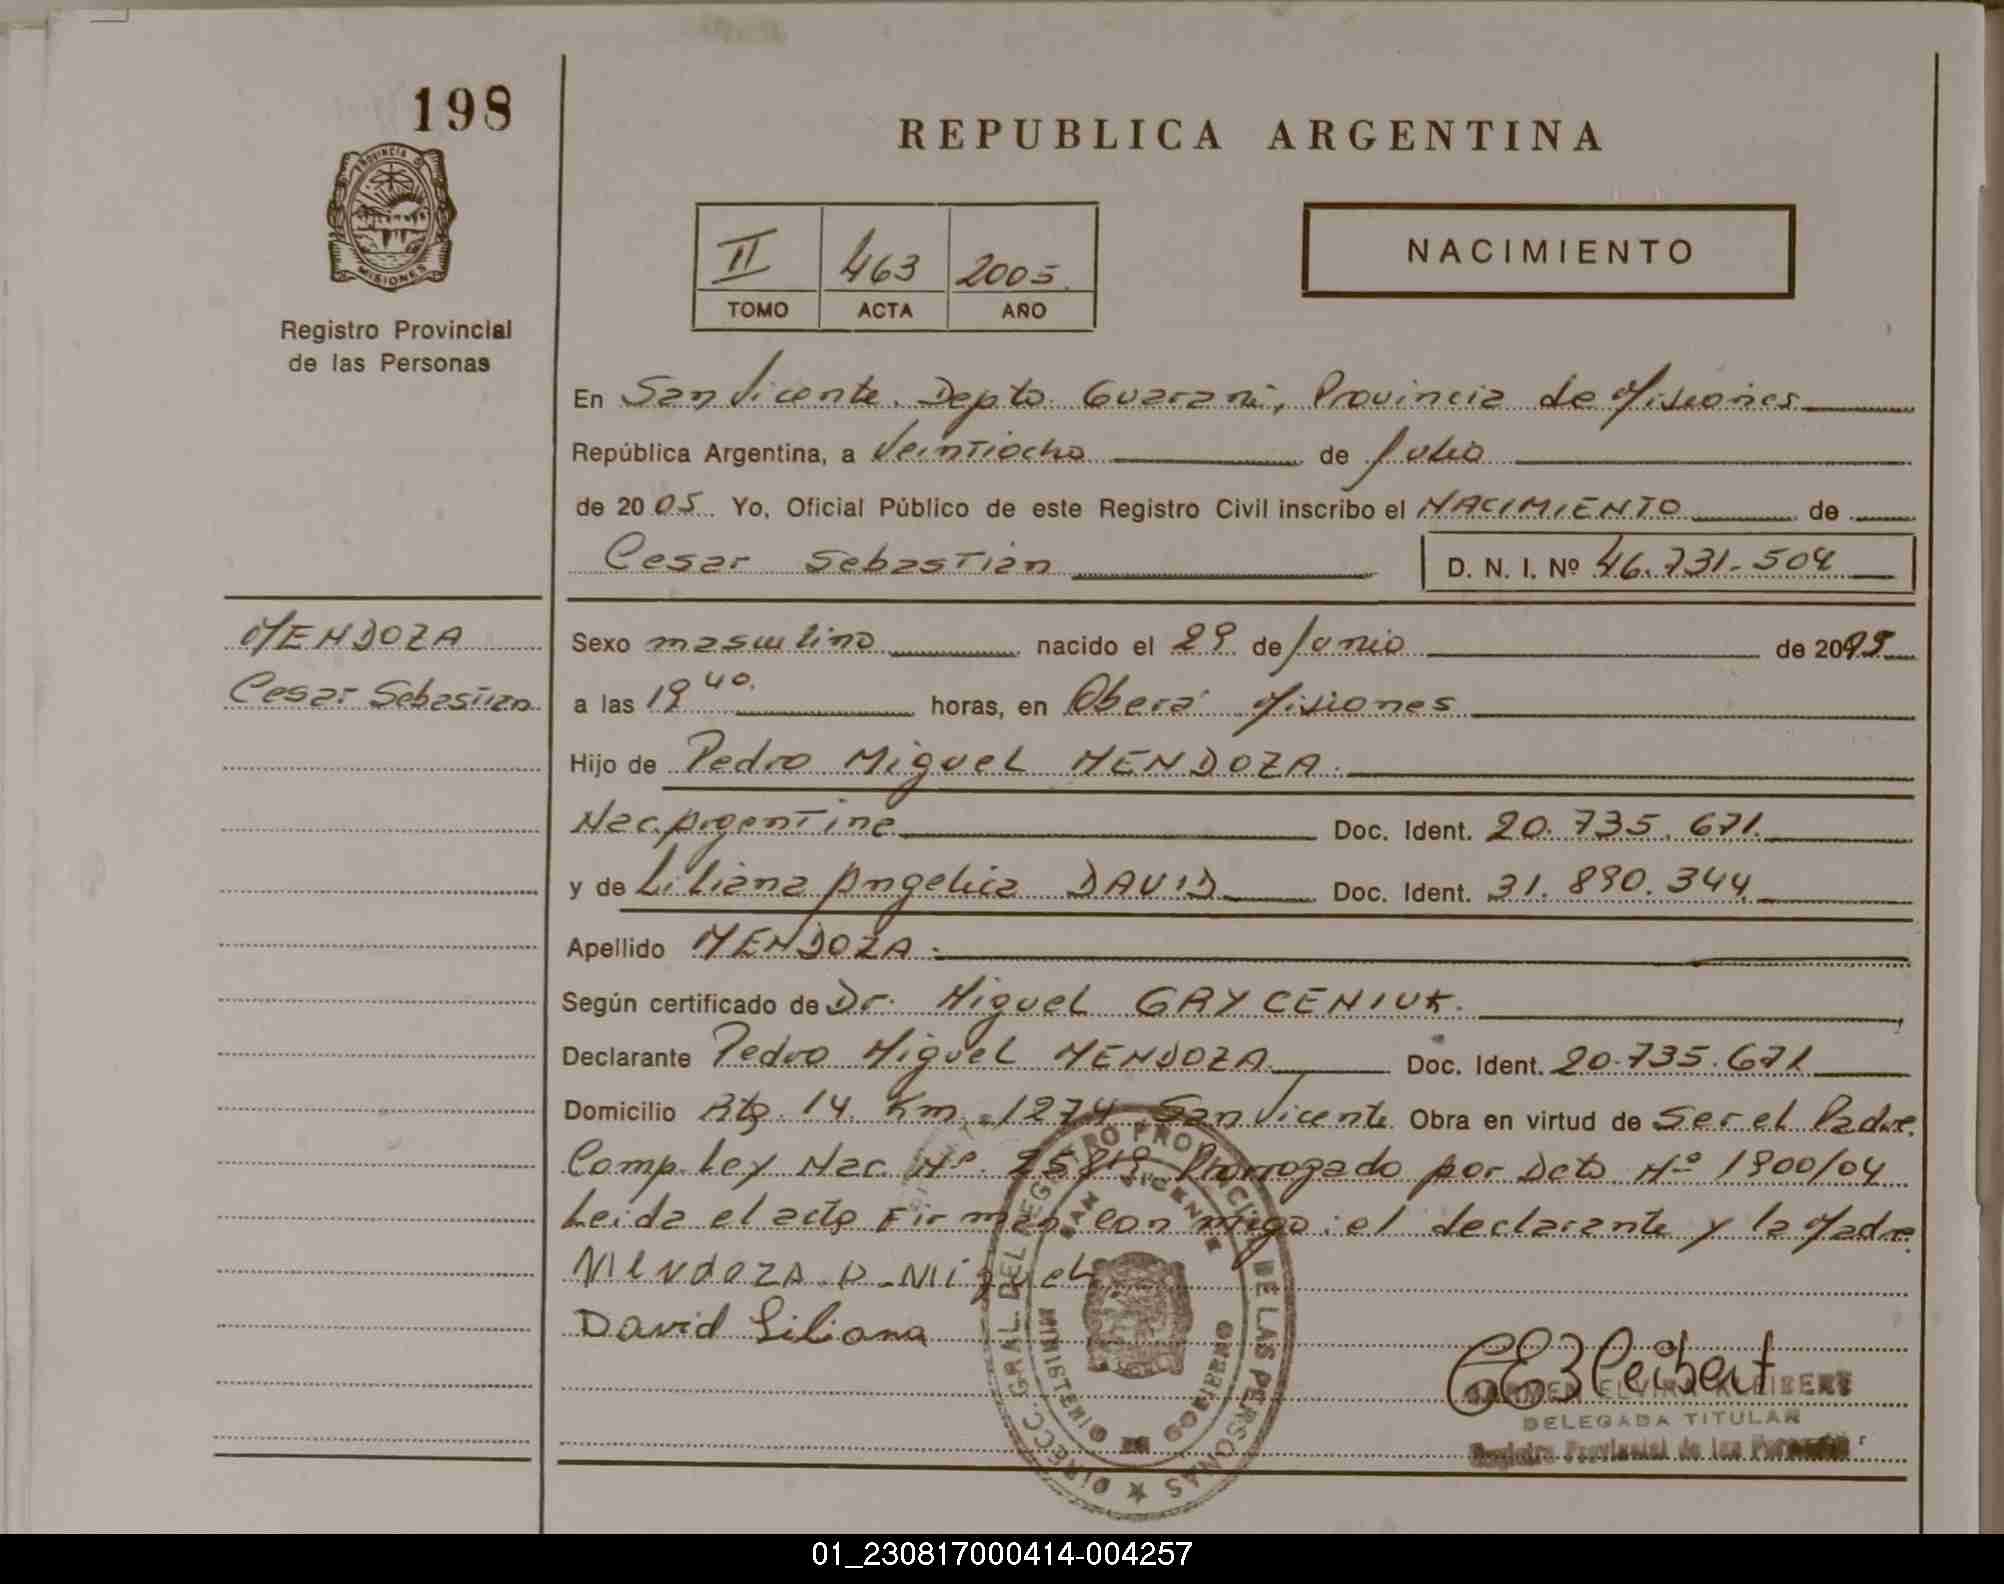 198
PROVINCIA DE
MISIONES
Registro Provincial
de las Personas
REPUBLICA ARGENTINA
II 463 2005
TOMO ACTA AÑO
NACIMIENTO
En San Vicente. Depto. Guaraní, Provincia de Misiones
República Argentina, a Veintiocho de Julio
de 2005. Yo, Oficial Público de este Registro Civil inscribo el NACIMIENTO de
Cesar Sebastián D. N. I. Nº 46.731.504
MENDOZA
Cesar Sebastian
Sexo masculino nacido el 29 de Junio de 2005
a las 19 40. horas, en Oberá Misiones
Hijo de Pedro Miguel MENDOZA.
Nac. Argentina Doc. Ident. 20.735.671.
y de Liliana Angelica DAVID Doc. Ident. 31.890.344
Apellido MENDOZA.
Según certificado de Dr. Miguel GRYCENIUK.
Declarante Pedro Miguel MENDOZA Doc. Ident. 20.735.671
Domicilio Rta. 14 Km. 1274 San Vicente Obra en virtud de Ser el Padre.
Comp. Ley Nac. Nº 25819 Prorrogado por Dcto Nº 1900/04
Leida el acta Firman con migo: el declarante y la Madre.
Mendoza P. Miguel
David Liliana
DIRECC. GRAL. DEL REGISTRO PROVINCIAL DE LAS PERSONAS
SAN VICENTE
MINISTERIO DE GOBIERNO
CE Kleibert
CARMEN ELVIRA KLEIBERT
DELEGADA TITULAR
Registro Provincial de las Personas
01_230817000414-004257